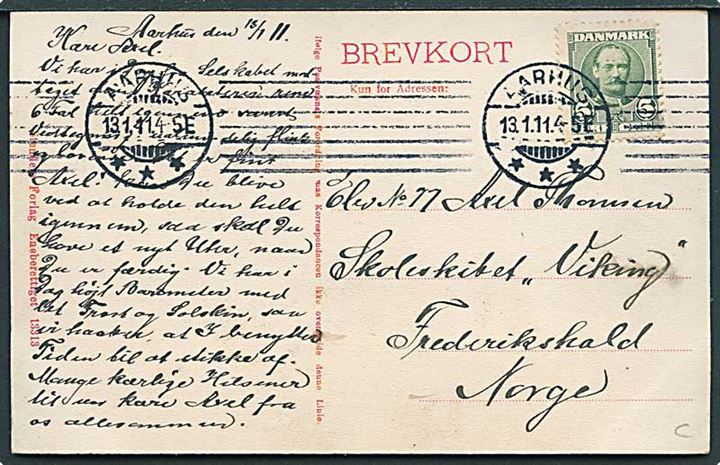 Aarhus den 13/1 11.
Kære Axel.
Vi har i Selskabet
6
Axel! Du blive
ved at holde den helt
igennem, saa skal Du
have et nyt Uhr, naar
Du er færdig. Vi har i
Dag højt Barometer med
let Frost og Solskin, saa
vi haaber, at I benytter
Tiden til at stikke af.
Mange kærlige Hilsener
til vor kære Axel fra
os allesammen.
Forlag Eneberettiget 13313
ikke overskride denne Linie.
BREVKORT
Kun for Adressen:
DANMARK
5
AARHUS
13.1.11.4-5E
AARHUS
13.1.11.4-5E
Elev No 77 Axel Thomsen
Skoleskibet „Viking"
Frederikshald
Norge
C